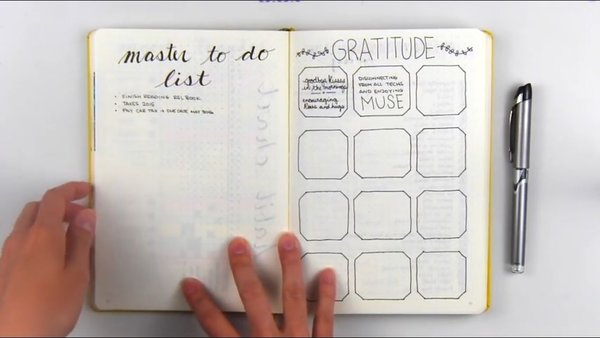 master to do
list
• FINISH READING REL BOOK
• TAXES 2015
• PAY CAR TAX
GRATITUDE
goodbye kisses
in the mornings
encouraging
kisses and hugs
DISCONNECTING
FROM ALL TECHS
AND ENJOYING
MUSE